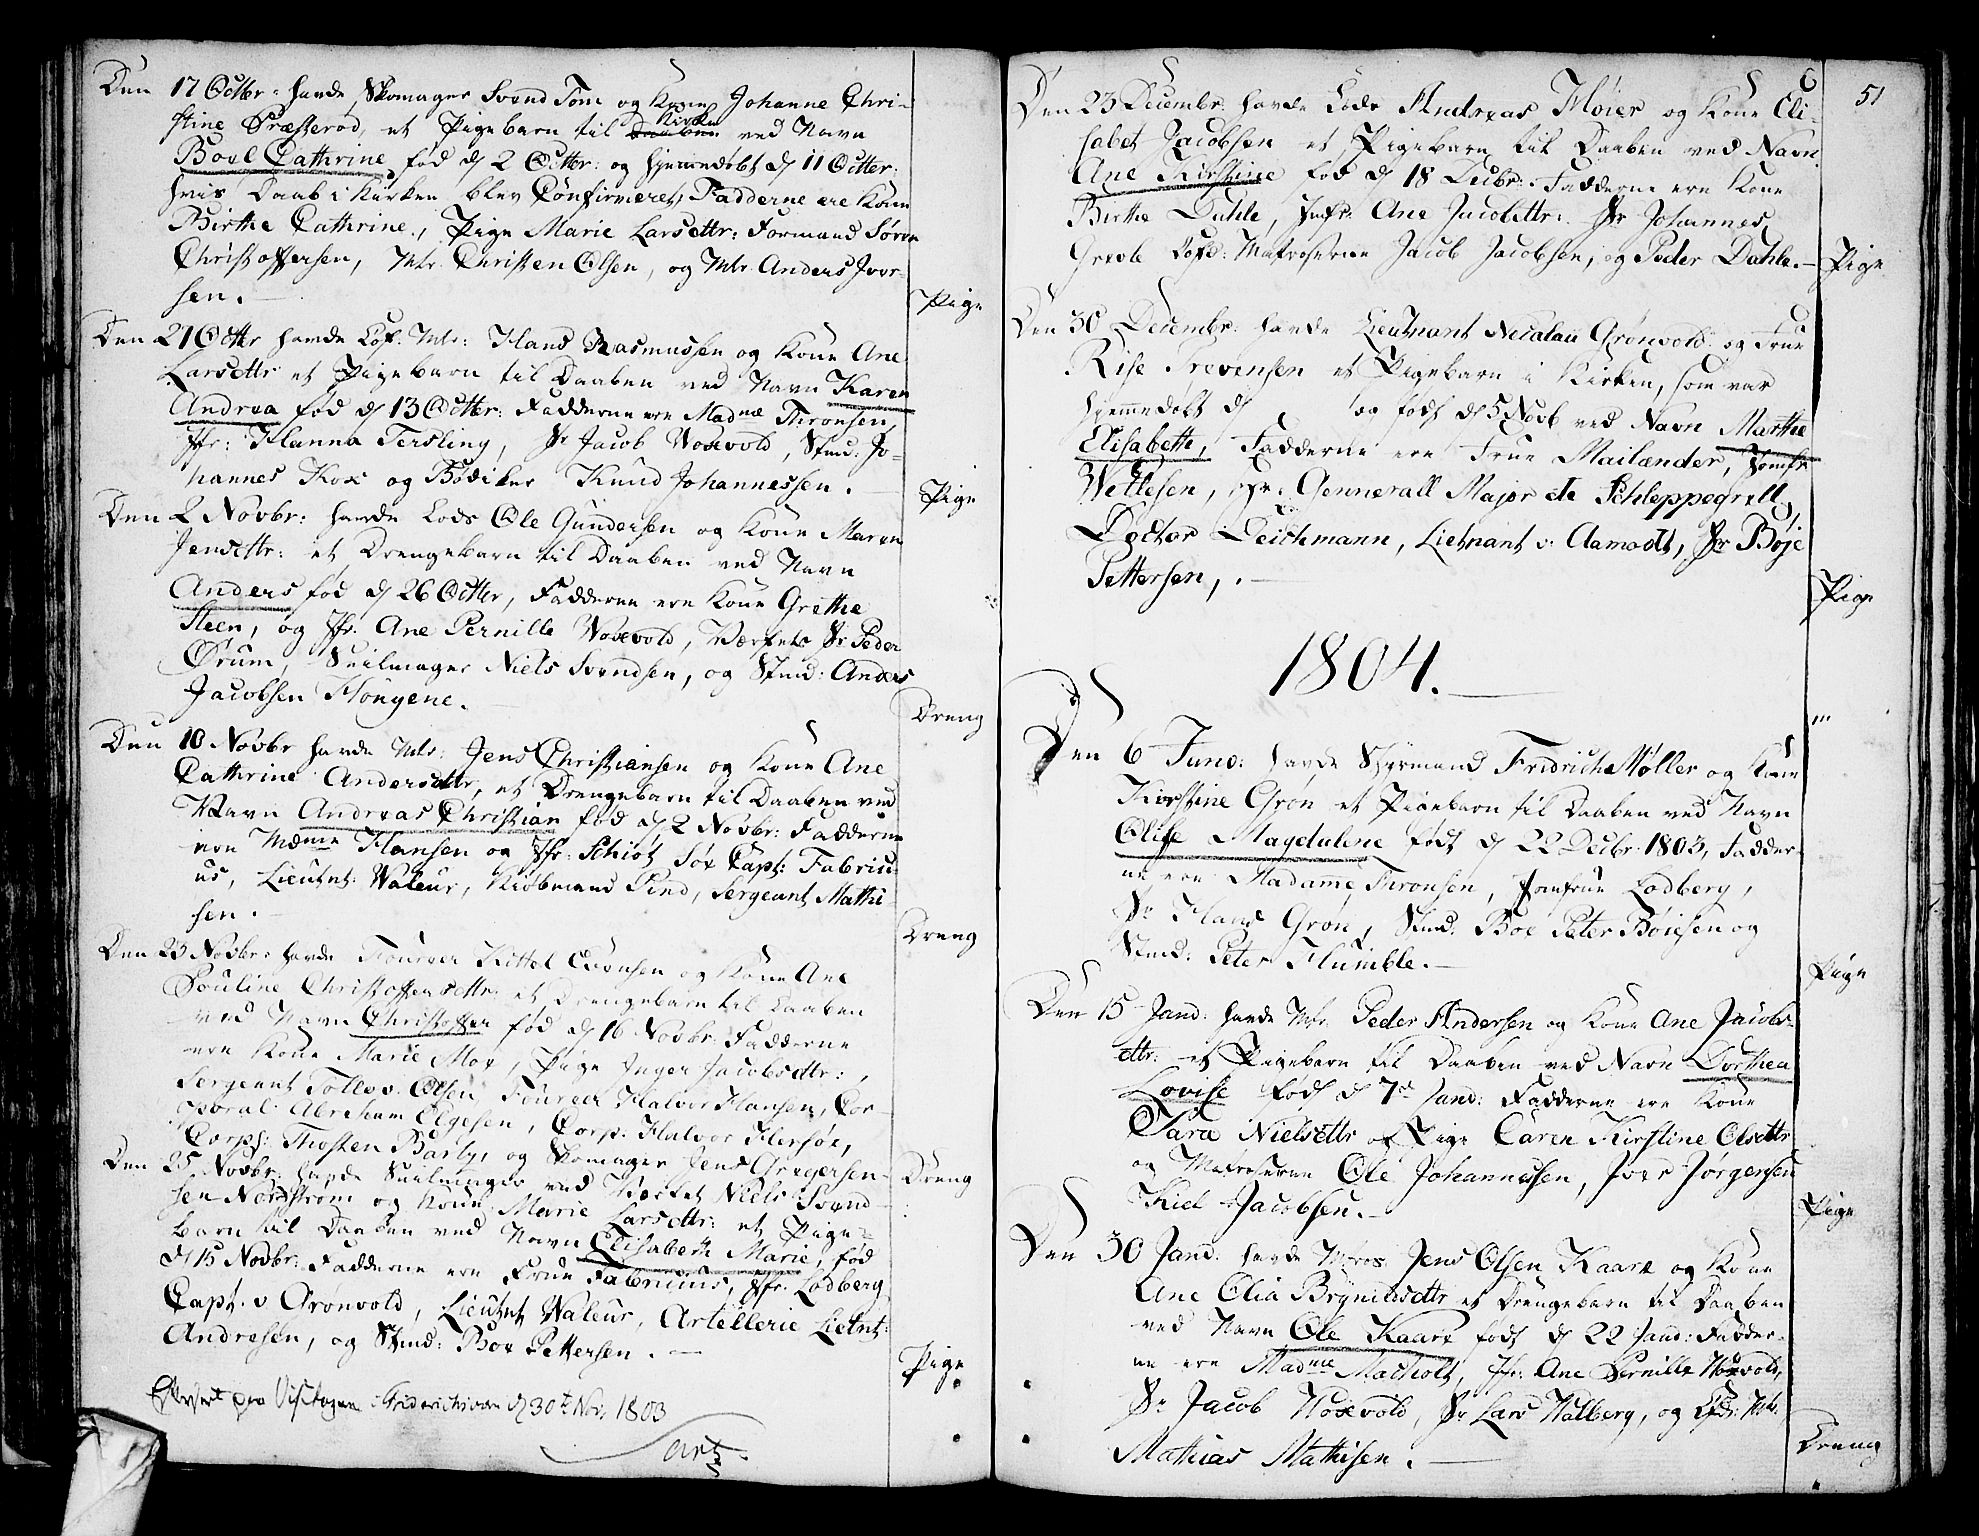 Den 17 Octbr: havde Skomager Svend Tom og Kone Johanne Chri-
stine Præsterød, et Pigebarn til Kirken ved Navn
Boel Cathrine fød d 2 Octbr: og hjemmedøbt d 11 Octbr:
hvis Daab i Kirken blev Confirmeret, Fadderne ere Kone
Birthe Cathrine, Pige Marie Larsdttr: Formand Søren
Christoffersen, Mtr. Christen Olsen, og Mtr. Anders Iver-
sen.
Pige
Den 21 Octbr havde Lof. Mtr: Hans Rasmussen og Kone Ane
Larsdttr et Pigebarn til Daaben ved Navn Karen
Andrea fød d 13 Octbr: Fadderne ere Madme Thronsen,
Jfr: Hanna Tersling, Hr Jacob Woxevold, Stmd: Jo-
hannes Kox og Bødiker Knud Johannessen.
Pige
Den 2 Novbr: havde Lods Ole Gundersen og Kone Maren
Jensdttr: et Drengebarn til Daaben ved Navn
Anders fød d 26 Octbr, Fadderne ere Kone Grethe
Steen, og Jfr. Ane Pernille Woxevold, Værfets Hr Peder
Ørum, Seilmager Niels Svendsen, og Stmd: Anders
Jacobsen Hougene.
Dreng
Den 10 Novbr havde Mtr: Jens Christiansen og Kone Ane
Cathrine Andersdttr, et Drengebarn til Daaben ved
Navn Andreas Christian fød d 2 Novbr: Fadderne
ere Madme Hansen og Jfr: Schiøt Søe Capt: Fabrici-
us, Lieutnt: Waleur, Kiøbmand Pind, Sergeant Mathi-
sen.
Dreng
Den 23 Novbr: havde Fourer Kittel Evensen og Kone Ane
Pouline Christoffersdttr: et Drengebarn til Daaben
ved Navn Christoffer fød d 16 Novbr: Fadderne
ere Kone Marie Moe, Pige Inger Jacobsdttr:,
Sergeant Tollev Olsen, Fourer Halvor Hansen, Cor-
poral Abraham Elgesen, Corp. Halvor Hersøe,
Corps: Thosten Barby, og Skomager Jens Gregersen
Dreng
Den 25 Novbr: havde Seilmager ved Værket Niels Svend-
sen Nordstrøm og Kone Marie Larsdttr: et Pige-
barn til Daaben ved Navn Elisabeth Marie, fød
d 15 Novbr: Fadderne ere Frue Fabricius, Jfr. Lodberg
Capt. v Grønvold, Lieutnt Waleur, Artellerie Lietnt:
Andresen, og Stmd: Boe Pettersen.
Pige
Visitazen Friderichsværn d 30te Nov. 1803
51
Den 23 Decembr: havde Lods Andreas Høier og Kone Eli-
sabet Jacobsen et Pigebarn til Daaben ved Navn
Ane Kirstine fød d 18 Decbr: Fadderne ere Kone
Birthe Dahle, Jmfr: Ane Jacobdttr: Hr Johannes
Greve Matroserne Jacob Jacobsen, og Peder Dahle.
Pige
Den 30 Decembr: havde Lieutnant Nicolau Grønvold og Frue
Rise Prevensen et Pigebarn i Kirken, som var
hjemmedøbt d og født d 5 Novb ved Navn Marthe
Elisabeth, Fadderne ere Frue Mailænder, Jomfr:
Wetlesen, Hr: Gennerall Major de Schleppegrell,
Doctor Deichmann, Lietnant v: Aamodt, Hr Bøje
Pettersen,.
Pige
1804.
Den 6 Janu: havde Styrmand Fridrich Møller og Kone
Kirstine Grøn et Pigebarn til Daaben ved Navn
Olise Magdalene født d 22 Decbr 1803, Fadder-
ne ere Madame Thronsen, Jomfrue Lodberg,
Hr Hans Grøn, Stmd: Boe Peter Bøiesen og
Stmd: Peter Humble.
Pige
Den 15 Janu: havde Mtr. Peder Andersen og Kone Ane Jacobs-
dttr: et Pigebarn til Daaben ved Navn Dorthea
Lovise født d 7de Janu: Fadderne ere Kone
Sara Nielsdttr og Pige Caren Kirstine Olsdttr
og Matroserne Ole Johannessen, Iver Jørgensen
Kiel Jacobsen.
Pige
Den 30 Janu: havde Mtros: Jens Olsen Kaare og Kone
Ane Olia Brynildsdttr et Drengebarn til Daaben
ved Navn Ole Kaare født d 22 Janu: Fadder-
ne ere Madme Macholt, Jfr: Ane Pernille Woxevold,
Hr Jacob Woxevold, Hr Lars Walberg, og Mtr.
Mathias Mathisen.
Dreng